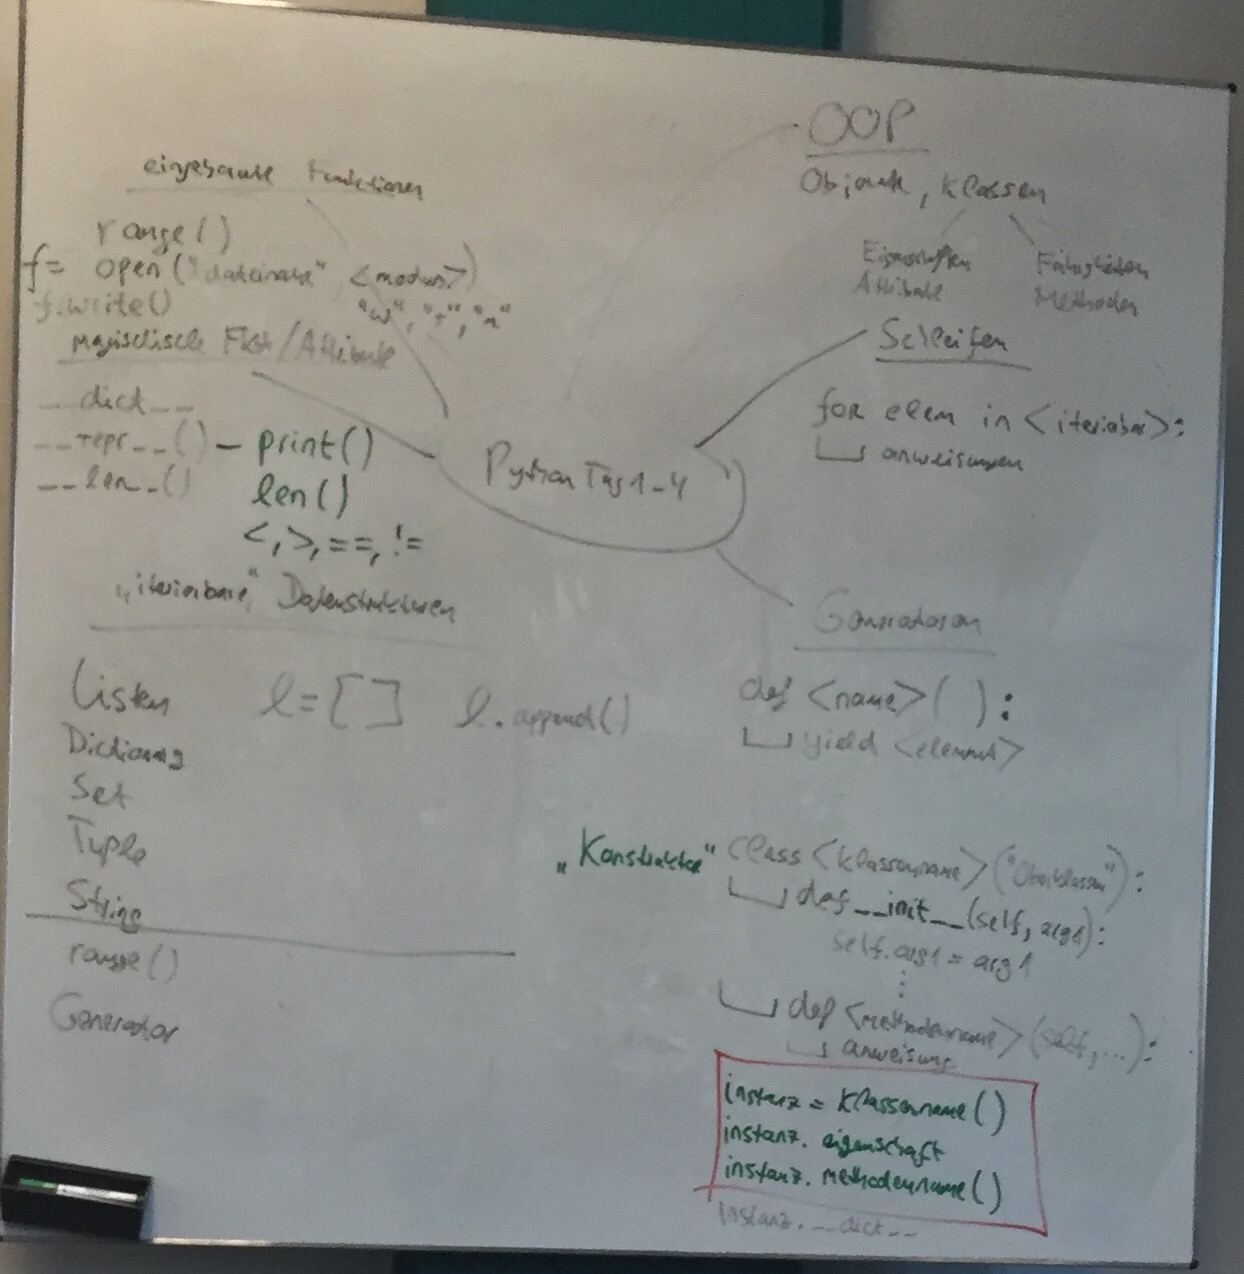 OOP
Objekte, Klassen
Eigenschaften
Attribute
Fähigkeiten
Methoden
eingebaute Funktionen
range()
f= open("dateiname", <modus>)
"w", "r", "a"
f.write()
magische Fkt/Attribute
__dict__
__repr__() – print()
__len__() len()
<, >, ==, !=
Python Tag 1-4
Schleifen
for elem in <iterierbar>:
anweisungen
Generatoren
def <name>( ):
yield <element>
„iterierbare" Datenstrukturen
Listen l=[] l.append()
Dictionary
Set
Tuple
String
range()
Generator
„Konstruktor" class <Klassenname>("Oberklassen"):
def __init__(self, arg1):
self.arg1 = arg1
def <methodenname>(self,...):
anweisung
instanz = Klassenname()
instanz.eigenschaft
instanz.methodenname()
instanz.__dict__